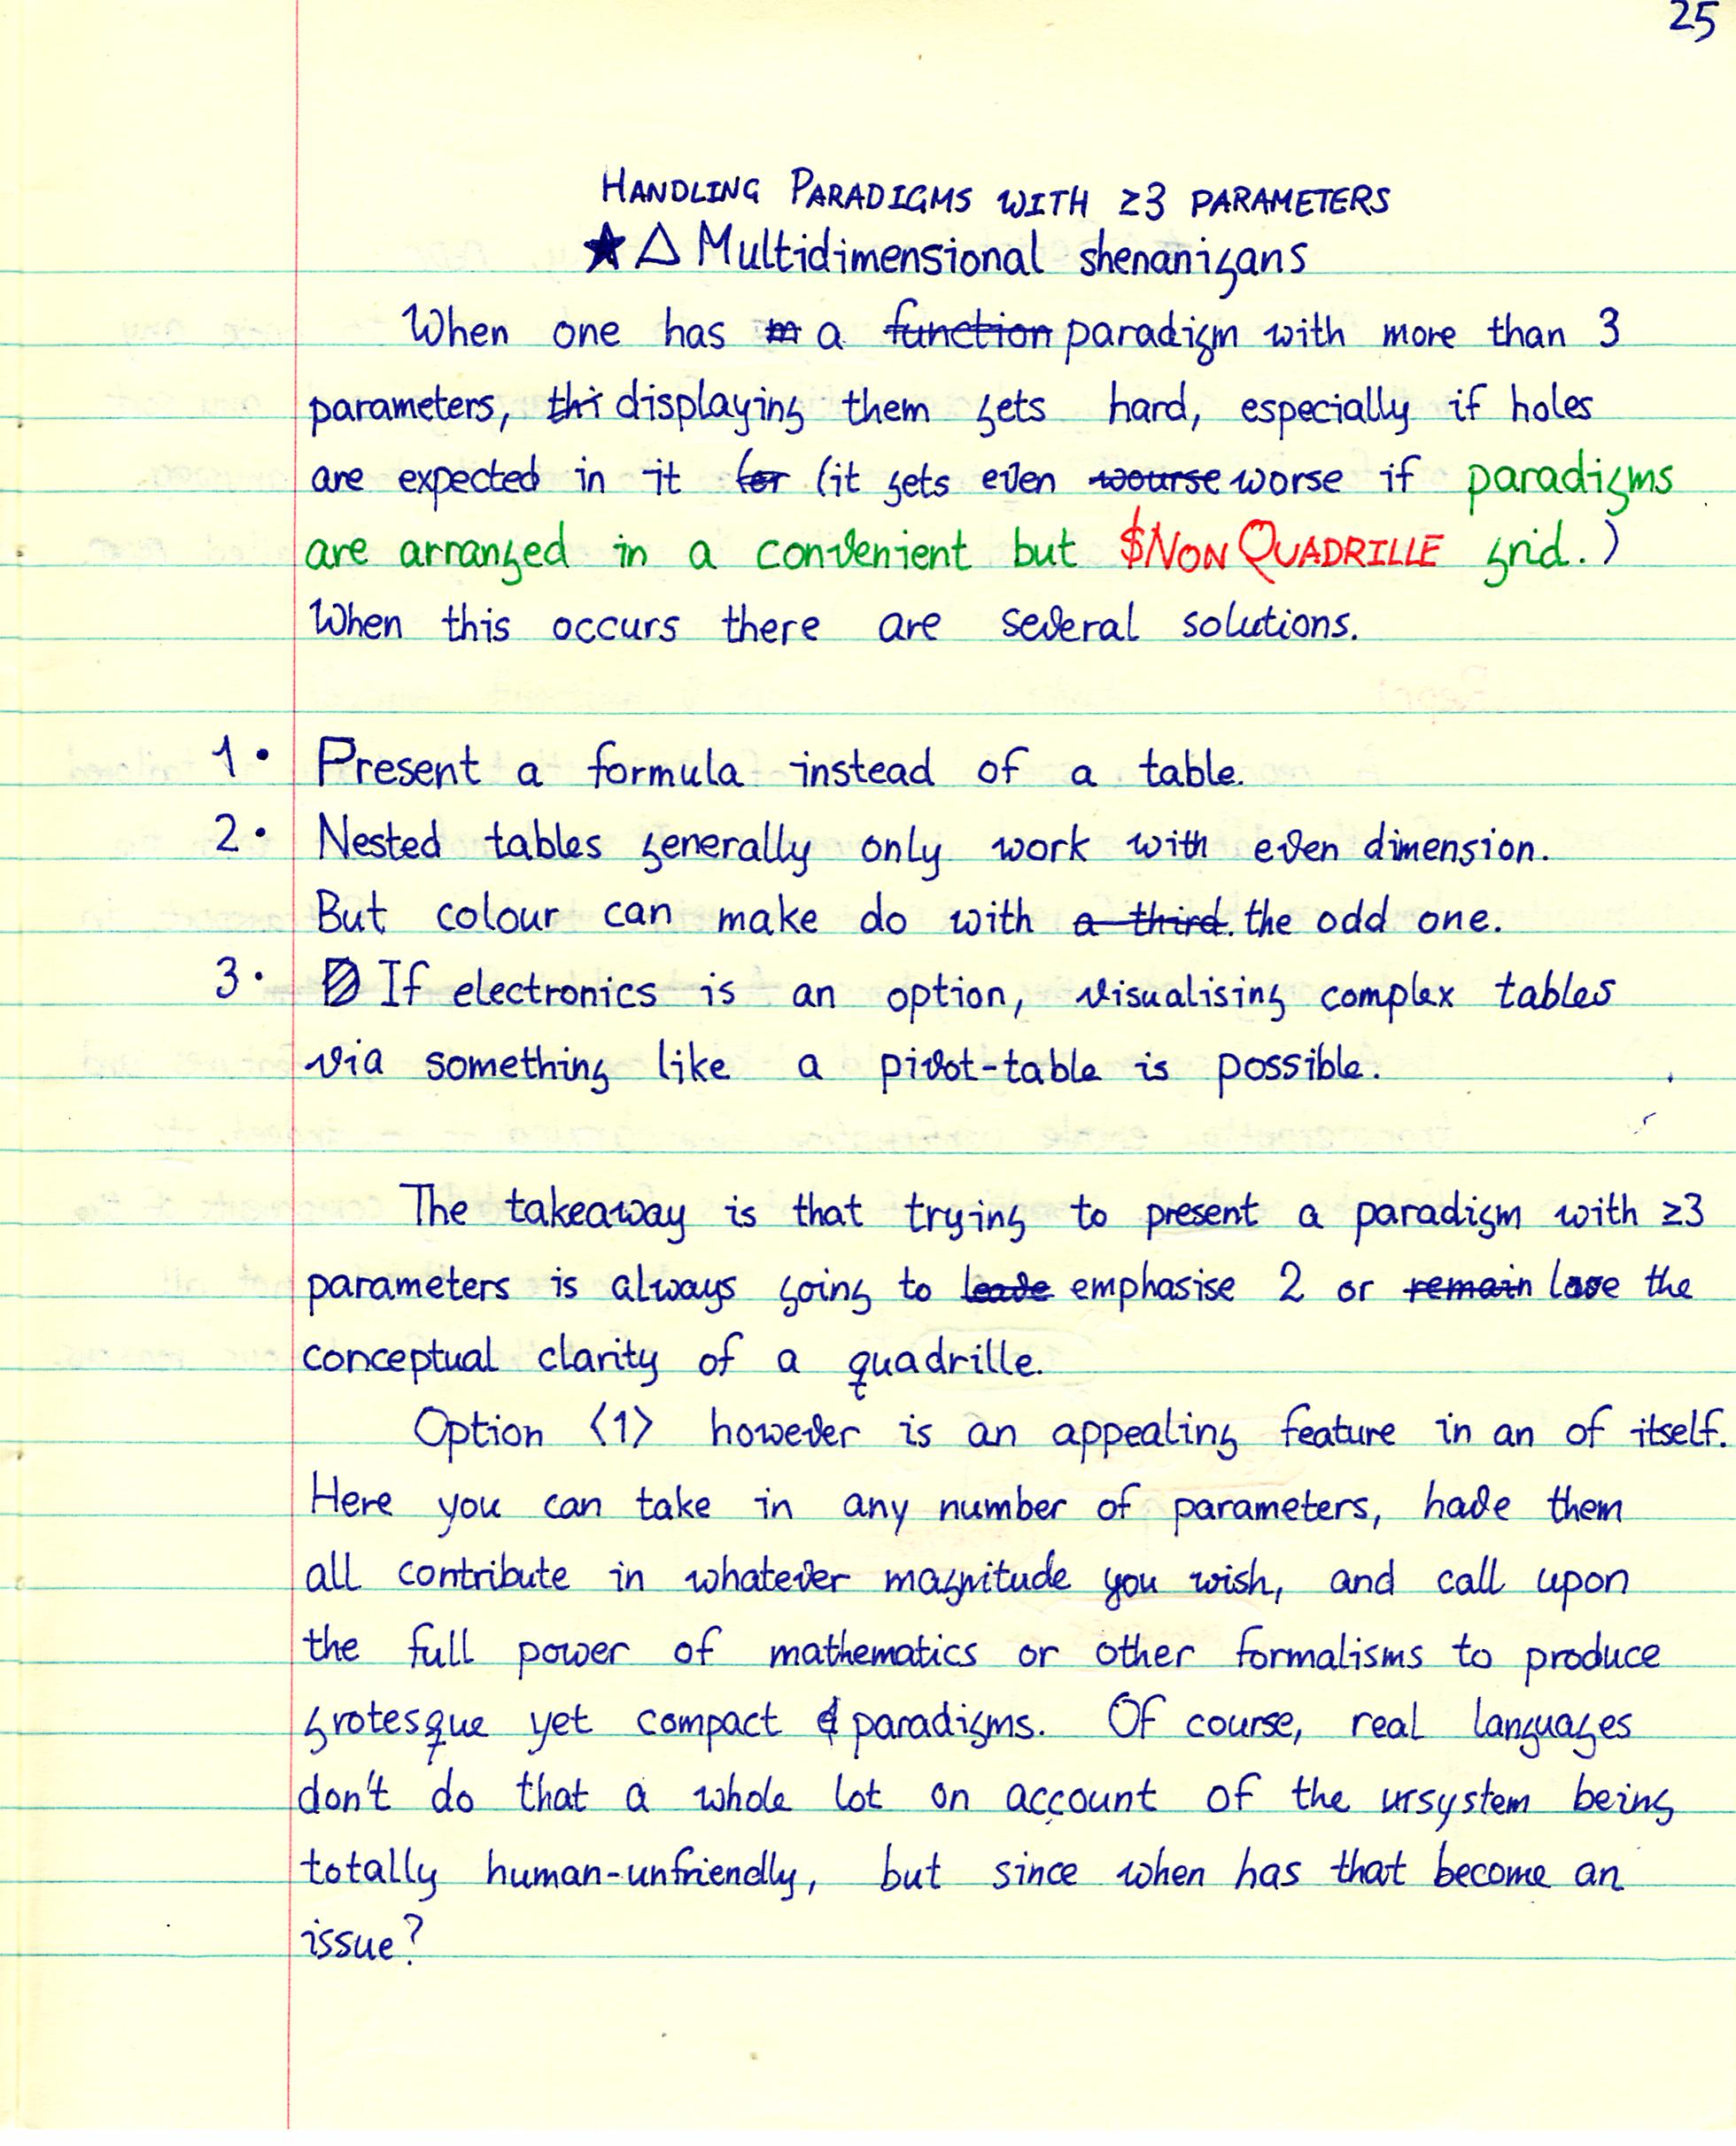 25
HANDLING PARADIGMS WITH ≥3 PARAMETERS
★△ Multidimensional shenanigans
When one has m a function paradigm with more than 3
parameters, thi displaying them gets hard, especially if holes
are expected in it (or (it gets even wourse worse if paradigms
are arranged in a convenient but $NON QUADRILLE grid.)
When this occurs there are several solutions.
1• Present a formula instead of a table.
2• Nested tables generally only work with even dimension.
But colour can make do with a third. the odd one.
3• If electronics is an option, visualising complex tables
via something like a pivot-table is possible.
The takeaway is that trying to present a paradigm with ≥3
parameters is always going to leave emphasise 2 or remain lose the
conceptual clarity of a quadrille.
Option ⟨1⟩ however is an appealing feature in an of itself.
Here you can take in any number of parameters, have them
all contribute in whatever magnitude you wish, and call upon
the full power of mathematics or other formalisms to produce
grotesque yet compact paradigms. Of course, real languages
don't do that a whole lot on account of the ursystem being
totally human-unfriendly, but since when has that become an
issue?